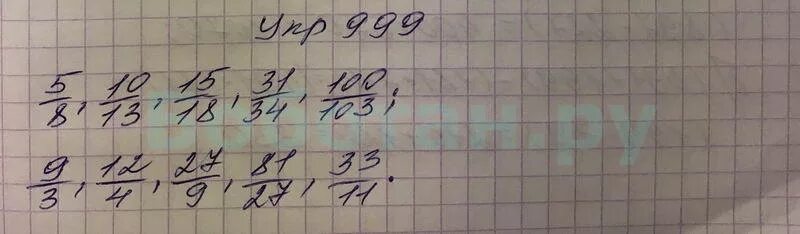 Упр 999
5/8, 10/13, 15/18, 31/34, 100/103;
9/3, 12/4, 27/9, 81/27, 33/11.